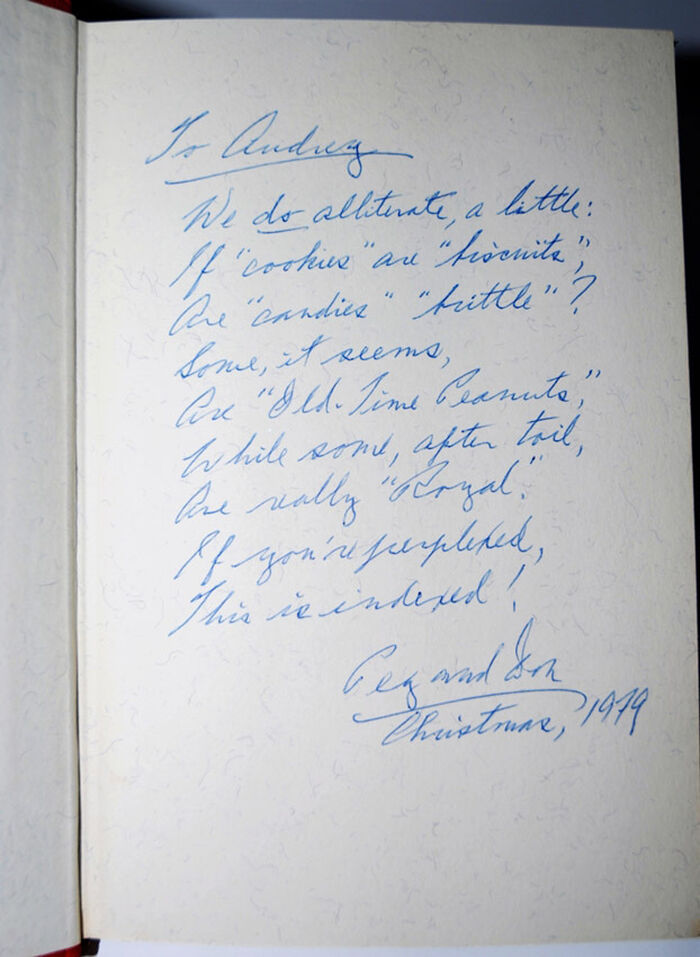 To Audrey
We do alliterate, a little:
If "cookies" are "biscuits",
Are "candies" "brittle"?
Some, it seems,
Are "Old-Time Peanuts,"
While some, after toil,
Are really "Royal."
If you're perplexed,
This is indexed!
Peg and Don
Christmas, 1979